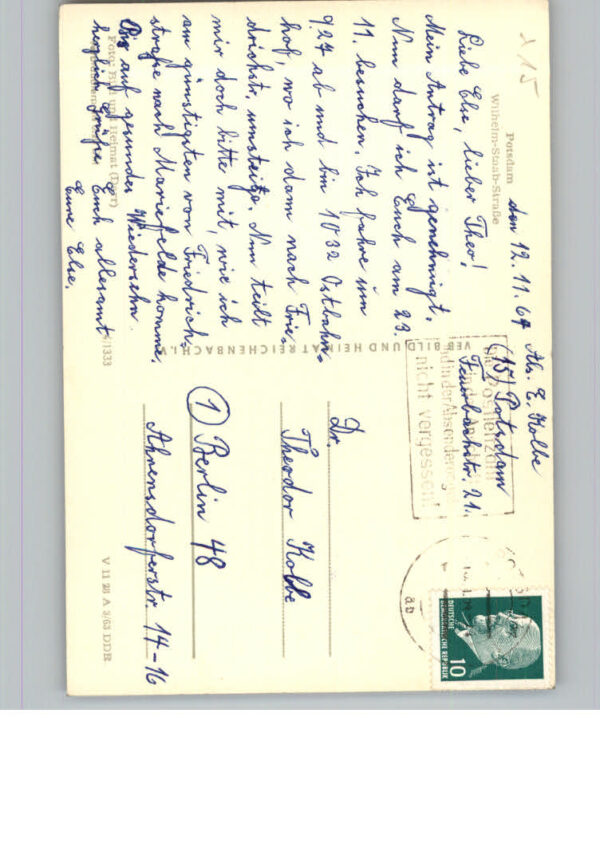 Potsdam
Wilhelm-Staab-Straße
den 12. 11. 64
Liebe Else, lieber Theo!
Mein Antrag ist genehmigt.
Nun darf ich Euch am 23.
11. besuchen. Ich fahre um
9.27 ab und bin 10 32 Ostbahn-
hof, wo ich dann nach Frie-
drichstr. umsteige. Nun teilt
mir doch bitte mit, wie ich
am günstigsten von Friedrich-
straße nach Marienfelde komme.
Bis auf gesundes Wiedersehn
herzlich grüße Euch allesamt
Eure Else.
Foto: Bild und Heimat (Darr)
/1333
VEB BILD UND HEIMAT REICHENBACH I. V.
Abs. E. Kolbe
(15) Potsdam
Feuerbachstr. 21.
Postleitzahl
und in der Absenderangabe
nicht vergessen!
DEUTSCHE
DEMOKRATISCHE REPUBLIK
10
Dr.
Theodor Kolbe
(1) Berlin 48
Ahrensdorferstr. 14-16
V 11 28 A 3/63 DDR